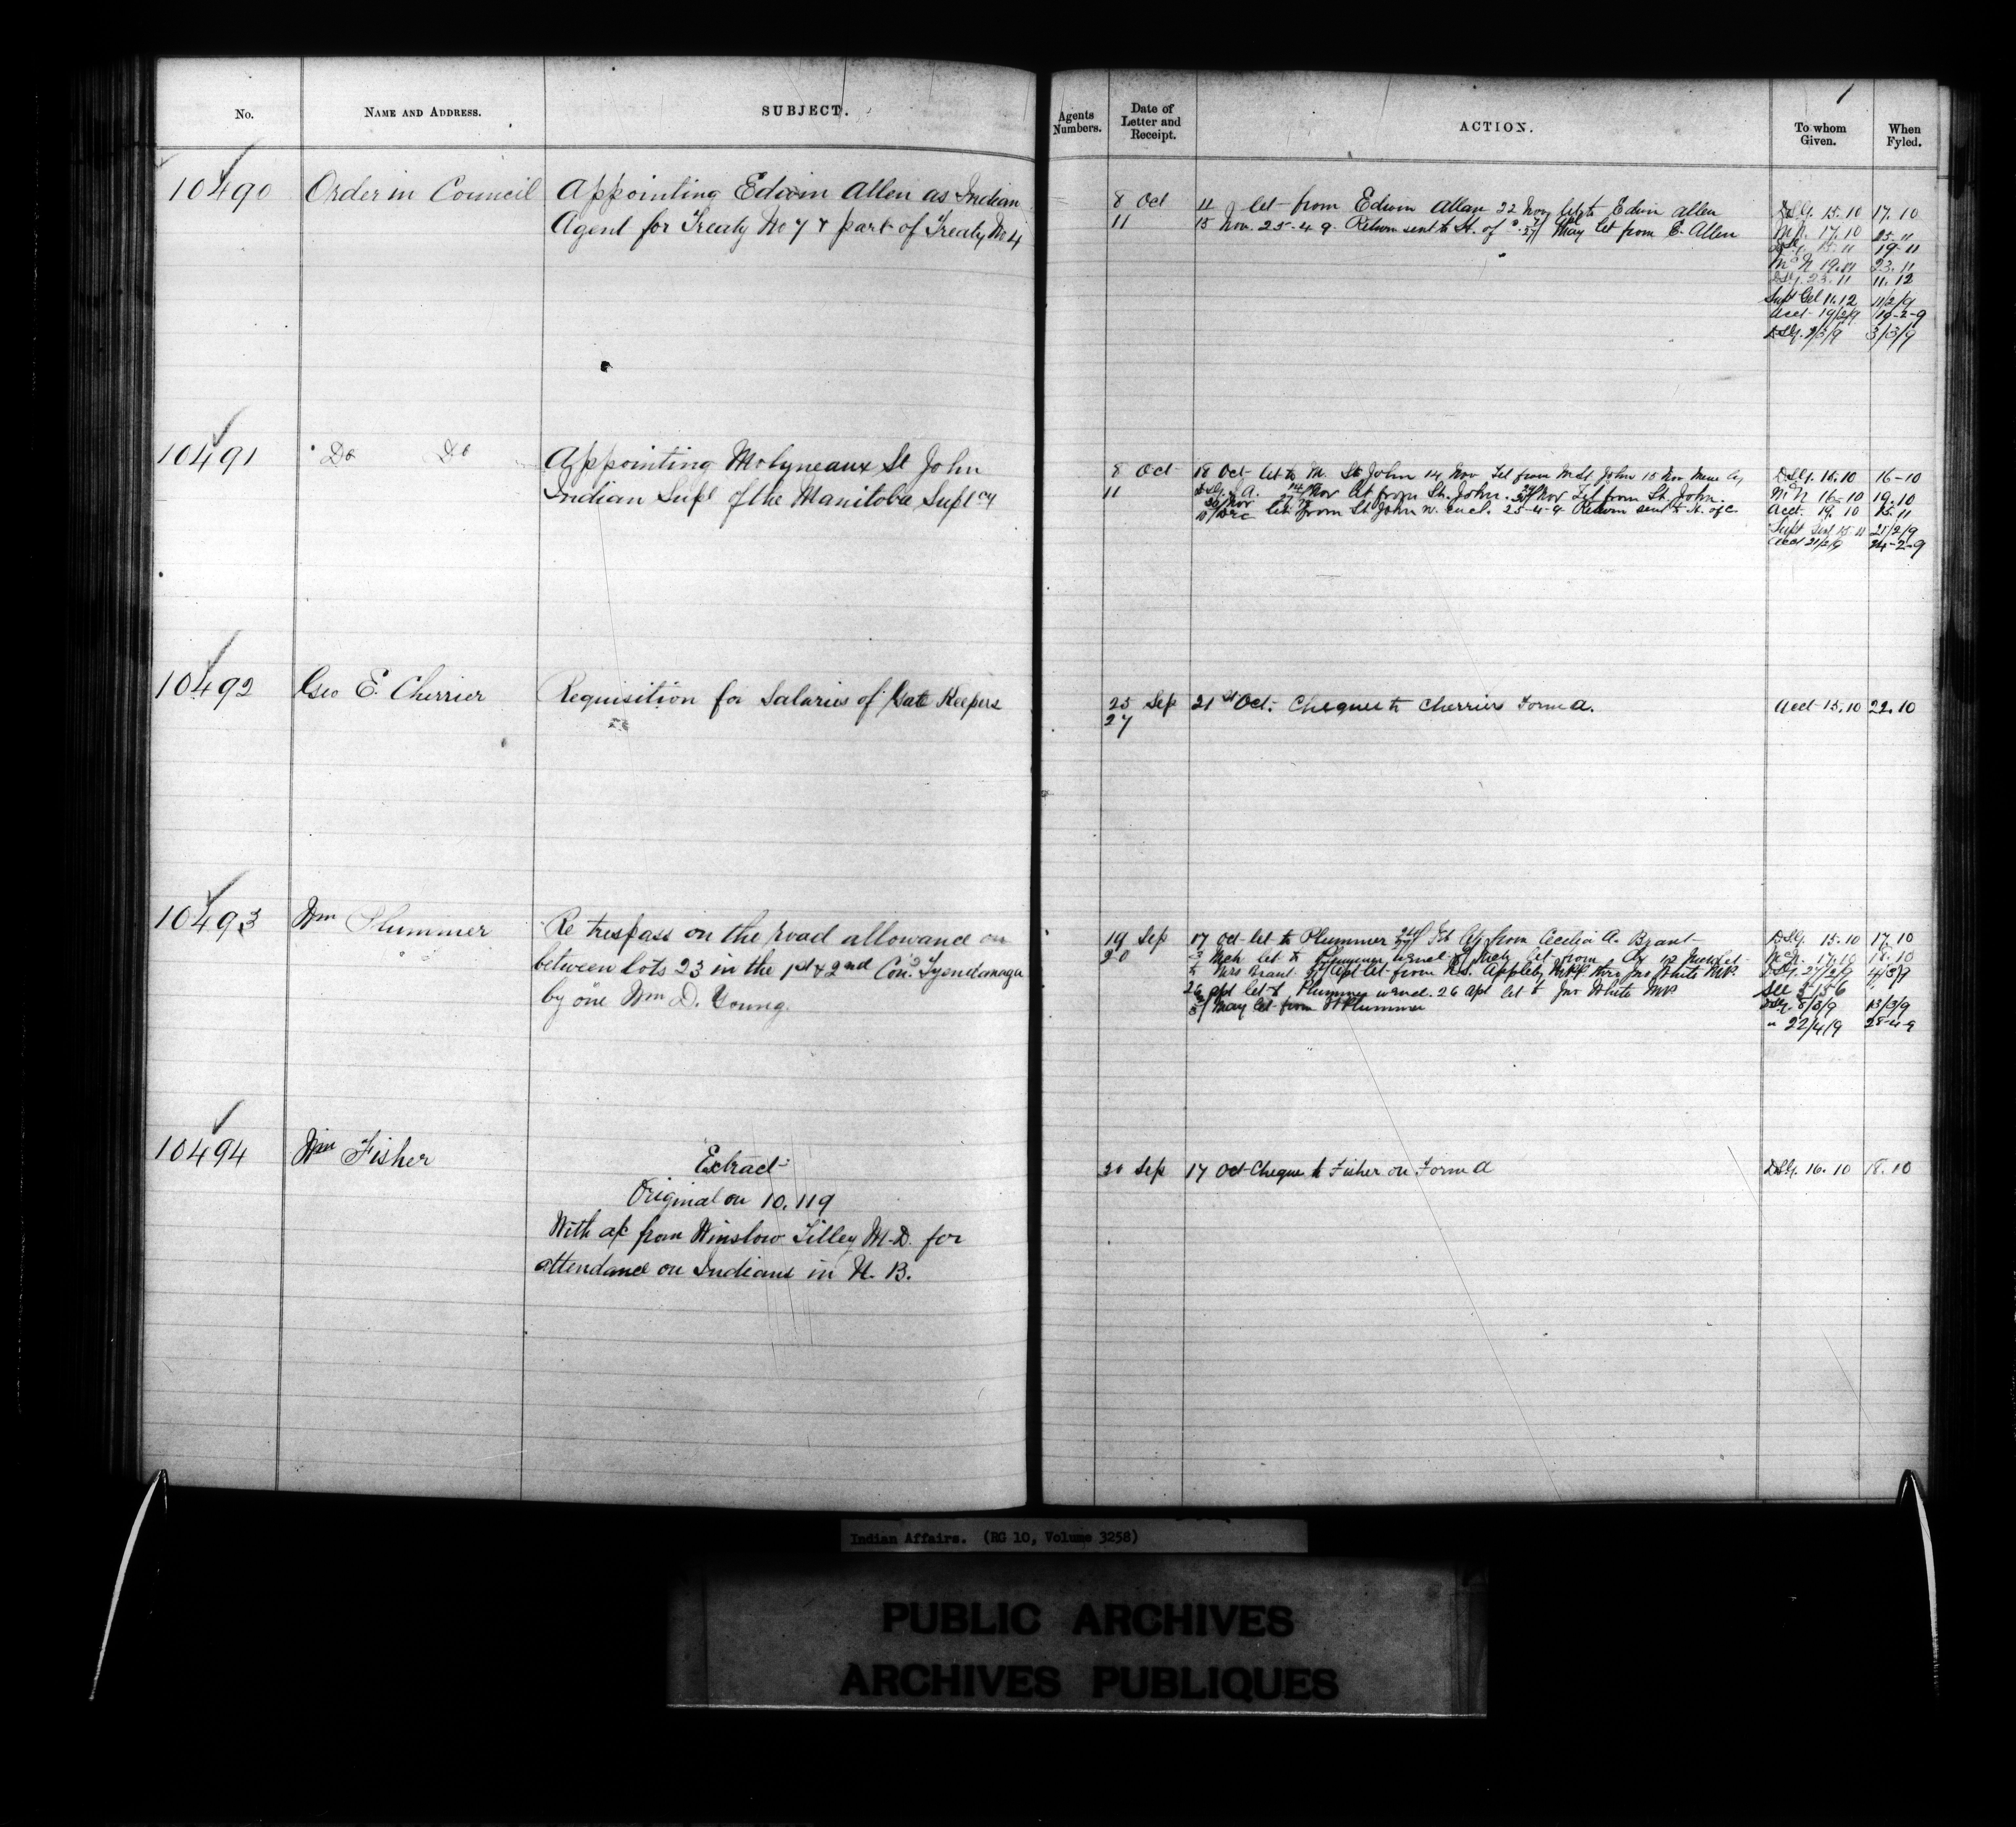 No.
NAME AND ADDRESS.
SUBJECT.
Agents Numbers.
Date of Letter and Receipt.
ACTION.
To whom Given.
When Fyled.
1
10490
Order in Council
Appointing Edwin Allen as Indian
Agent for Treaty No 7 & part of Treaty No 4
8 Oct
11
let from Edwin Allen 22 Nov let to Edwin Allen
15 Nov. 25-4-9. Return sent to H. of C. May let from E. Allen
15.10 17.10
17.10 25-11
15-11 19-11
23.11
23.11 11.12
Supt Gel 11.12 11/2/9
Acct 19/2/9 19-2-9
3/3/9
10491
Do Do
Appointing Molyneaux St John
Indian Supt of the Manitoba Suptcy
8 Oct
11
18 Oct let to M. St John 14 Nov Tel from M St John 15 Nov
Nov let from St. John. Nov Tel from St. John.
10/Dec let from St John w. encl. 25-4-9 Return sent to H. of C
15.10 16-10
16-10 19.10
Acct. 19.10 15.11
21/2/9
Acct 21/2/9 24-2-9
10492
Geo E. Cherrier
Requisition for Salaries of Gate Keepers
25 Sep
27
21st Oct. Cheques to Cherrier Form A.
Acct 15.10 22.10
10493
Wm Plummer
Re trespass on the road allowance on
between lots 23 in the 1st & 2nd Cons Tyendanaga
by one Wm D. Young.
19 Sep
20
17 Oct let to Plummer from Cecilia A. Brant
Mch let to Plummer
to Mrs Brant Apl let from Appleby Jno White MP
26 Apl let to Plummer w encl. 26 Apl let to Jno White MP
May let from W Plummer
15.10 17.10
17.10 18.10
27/2/9 4/3/9
8/3/9 13/3/9
" 22/4/9 28-4-9
10494
Wm Fisher
Extract
Original on 10.119
With a/c from Winslow Tilley M.D. for
attendance on Indians in N. B.
20 Sep
17 Oct Cheque to Fisher on Form A
16.10 18.10
Indian Affairs. (RG 10, Volume 3258)
PUBLIC ARCHIVES
ARCHIVES PUBLIQUES